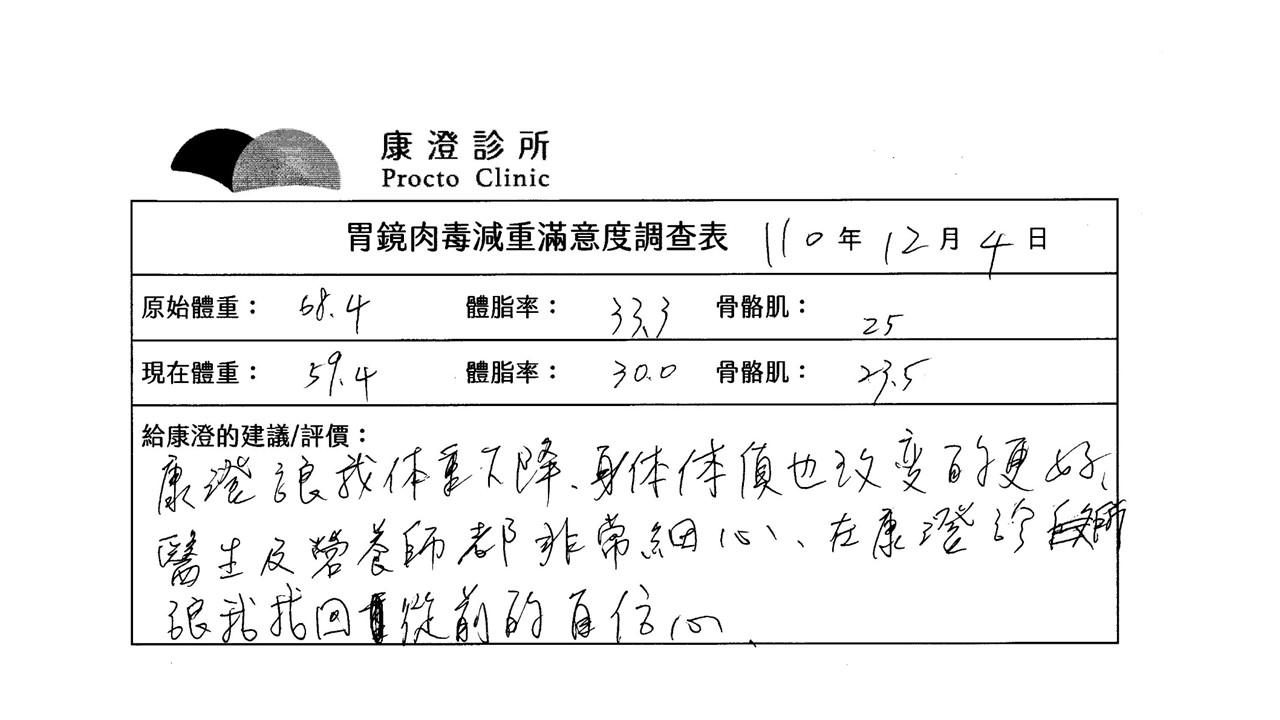 康澄診所
Procto Clinic
胃鏡肉毒減重滿意度調查表 110年12月4日
原始體重： 68.4 體脂率： 33.3 骨骼肌： 25
現在體重： 59.4 體脂率： 30.0 骨骼肌： 23.5
給康澄的建議/評價：
康澄讓我体重下降、身体体質也改變的更好、
醫生及營養師都非常細心、在康澄診所
讓我找回從前的自信心、